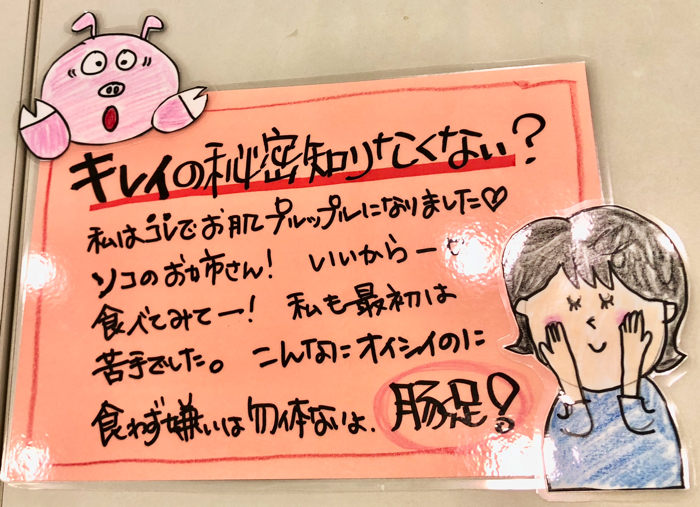 キレイの秘密知りたくない？
私はコレでお肌プルップルになりました♡
ソコのお姉さん！ いいからー
食べてみてー！ 私も最初は
苦手でした。 こんなにオイシイのに
食わず嫌いは勿体ないよ.
腸足！